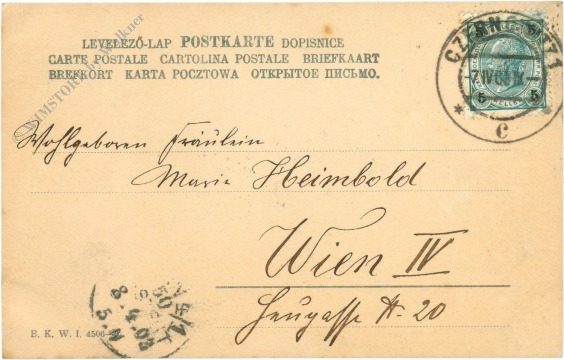 LEVELEZŐ-LAP POSTKARTE DOPISNICE
CARTE POSTALE CARTOLINA POSTALE BRIEFKAART
BREFKORT KARTA POCZTOWA ОТКРЫТОЕ ПИСЬМО.
5 5
-7 IV 03
C
Wohlgeboren Fräulein
Marie Heimbold
Wien IV
Heugasse № 20
8.4.03
B. K. W. I. 4506-